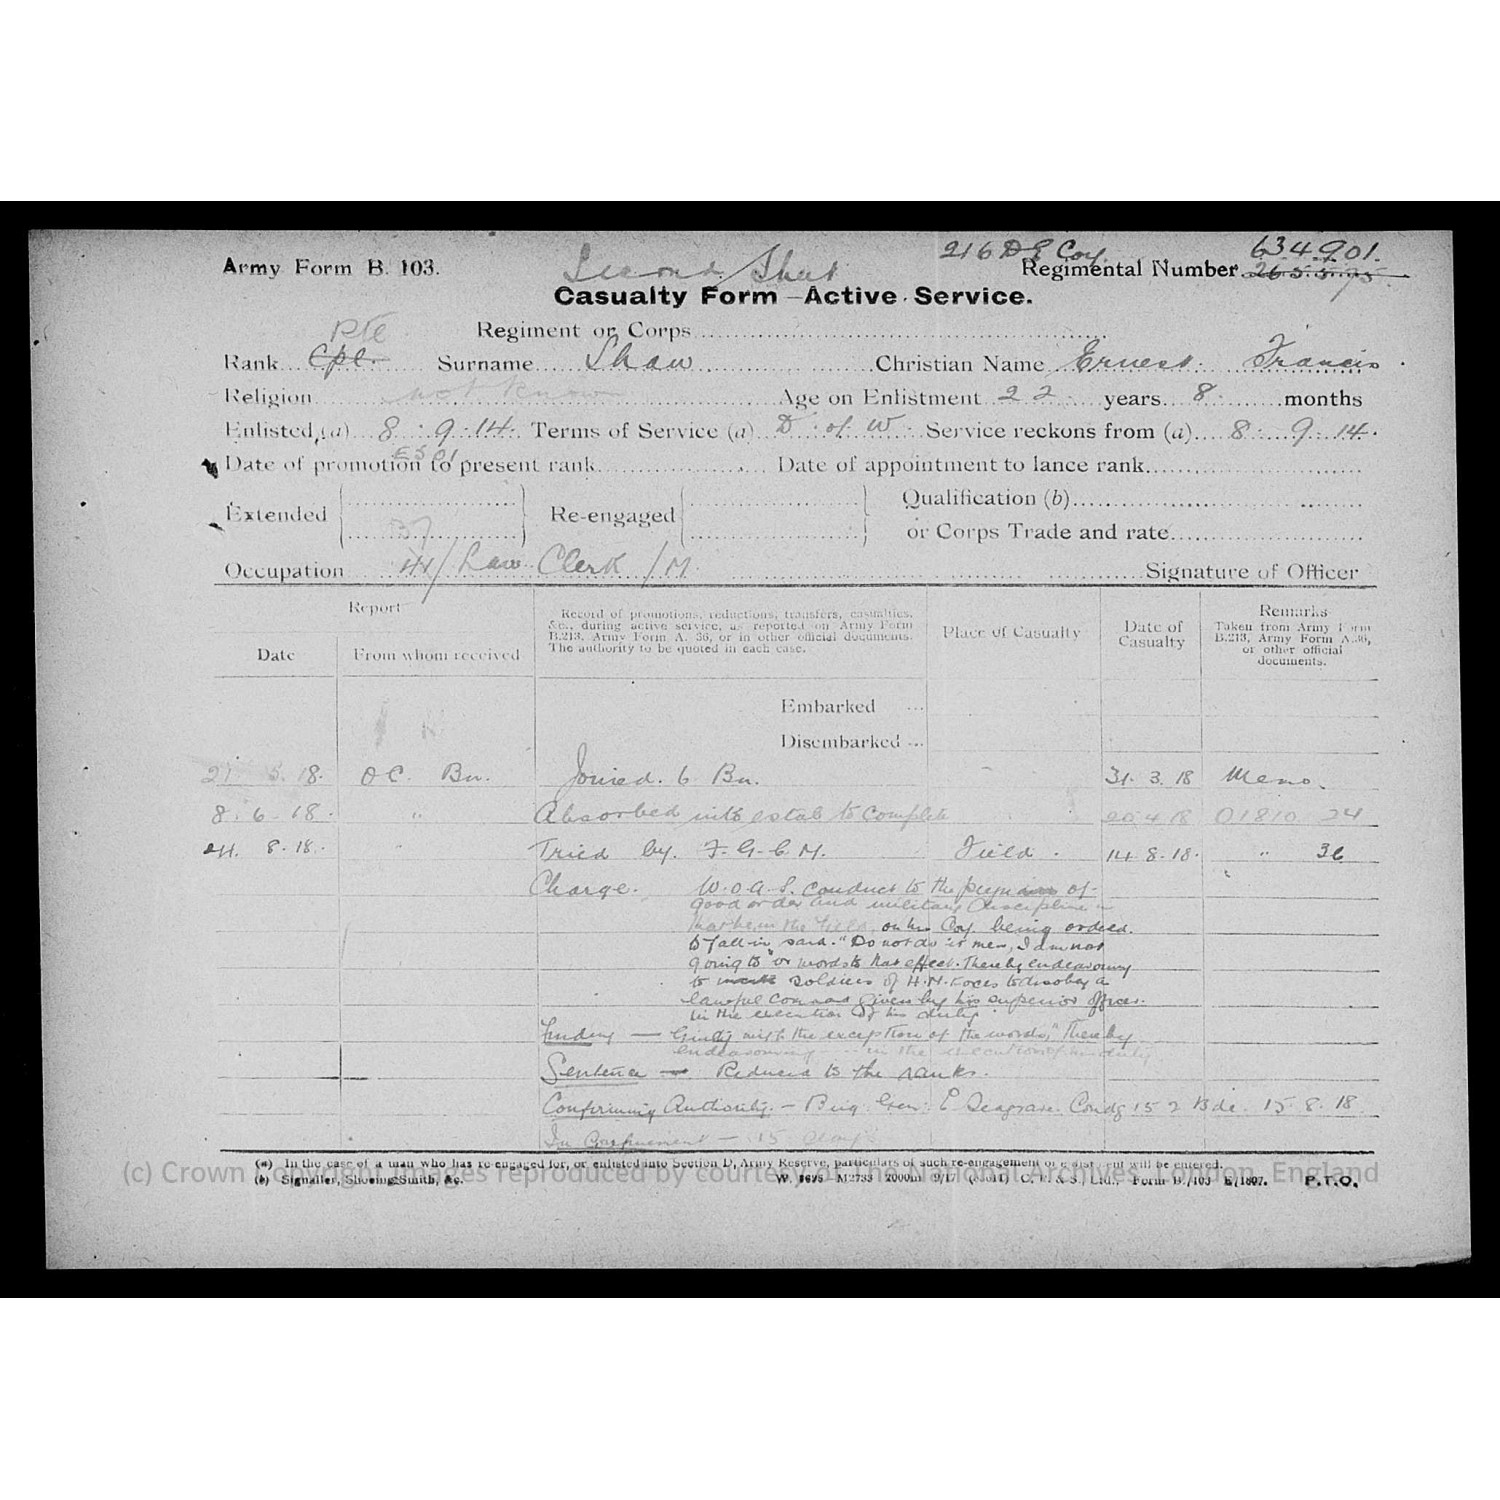 216 D E Coy. 634901.
Army Form B. 103. Second Sheet Regimental Number 265575
Casualty Form—Active Service.
Pte
Regiment or Corps
Rank Cpl. Surname Shaw Christian Name Ernest Francis
Religion not know Age on Enlistment 22 years 8 months
Enlisted (a) 8.9.14. Terms of Service (a) D. of W. Service reckons from (a) 8.9.14.
Date of promotion to present rank Date of appointment to lance rank
Extended Re-engaged Qualification (b)
37
or Corps Trade and rate
Occupation 41/ Law Clerk /M. Signature of Officer
Report
Date From whom received
Record of promotions, reductions, transfers, casualties, &c., during active service, as reported on Army Form B.213, Army Form A. 36, or in other official documents. The authority to be quoted in each case.
Place of Casualty
Date of Casualty
Remarks
Taken from Army Form B.213, Army Form A.36, or other official documents.
Embarked ...
Disembarked ...
18. OC. Bn. Joined. 6 Bn. 31.3.18 Memo.
8.6.18. " Absorbed into estab to complete 20 4 18 O1810 24
24. 8.18. " Tried by. F.G.C.M. Field. 14.8.18. " 36
Charge. W.O.A.S. conduct to the prej of
good order and military discipline in
that he in the field, on his Coy. being ordered
to fall-in said. "Do not do it men, I am not
going to" or words to that effect. Thereby endeavouring
to soldiers of H.M. Forces to disobey a
lawful command given by his superior officer.
in the execution of his duty
Finding — Guilty with the exception of the words, "Thereby
endeavouring ---- in the execution of his duty
Sentence — Reduced to the ranks.
Confirming Authority. — Brig. Gen. E Seagrave. Comdg 152 Bde. 15.8.18.
In Confinement — 15 days
(a) In the case of a man who has re-engaged for, or enlisted into Section D, Army Reserve, particulars of such re-engagement or enlistment will be entered.
(c) Crown Copyright Images reproduced by courtesy of The National Archives, London, England
(b) Signaller, Shoeing Smith, &c. M2733 2000m 9/17 C. F. & S., Ltd., Form B./103 E/1807. P.T.O.